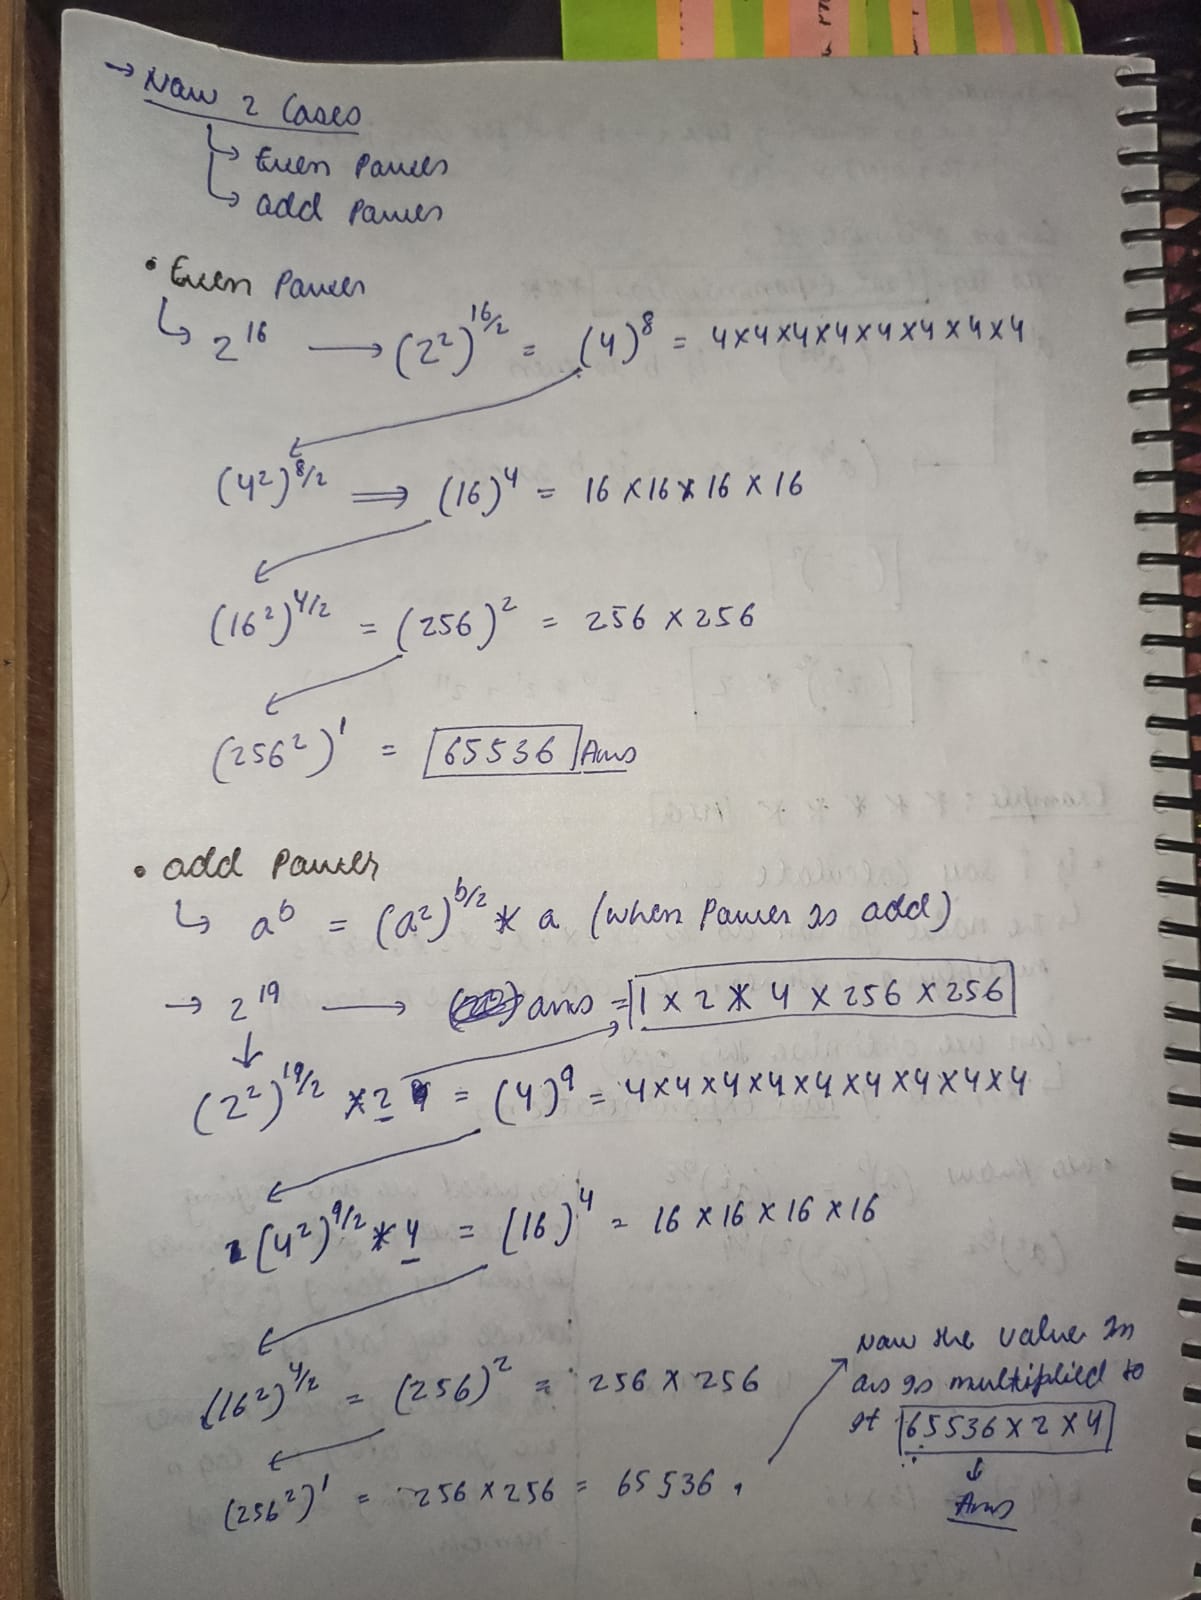 → Now 2 Cases
↳ Even Power
↳ odd Power
• Even Power
↳ 2^16 → (2^2)^16/2 = (4)^8 = 4×4×4×4×4×4×4×4
(4^2)^8/2 ⟹ (16)^4 = 16×16×16×16
(16^2)^4/2 = (256)^2 = 256×256
(256^2)^1 = 65536 Ans
• odd Power
↳ a^b = (a^2)^b/2 * a (when Power is odd)
→ 2^19 → ans = 1×2*4×256×256
(2^2)^19/2 *2 = (4)^9 = 4×4×4×4×4×4×4×4×4
(4^2)^9/2 *4 = (16)^4 = 16×16×16×16
(16^2)^4/2 = (256)^2 = 256×256
(256^2)^1 = 256×256 = 65536.
Now the value in
ans is multiplied to
it 65536×2×4
↓
Ans